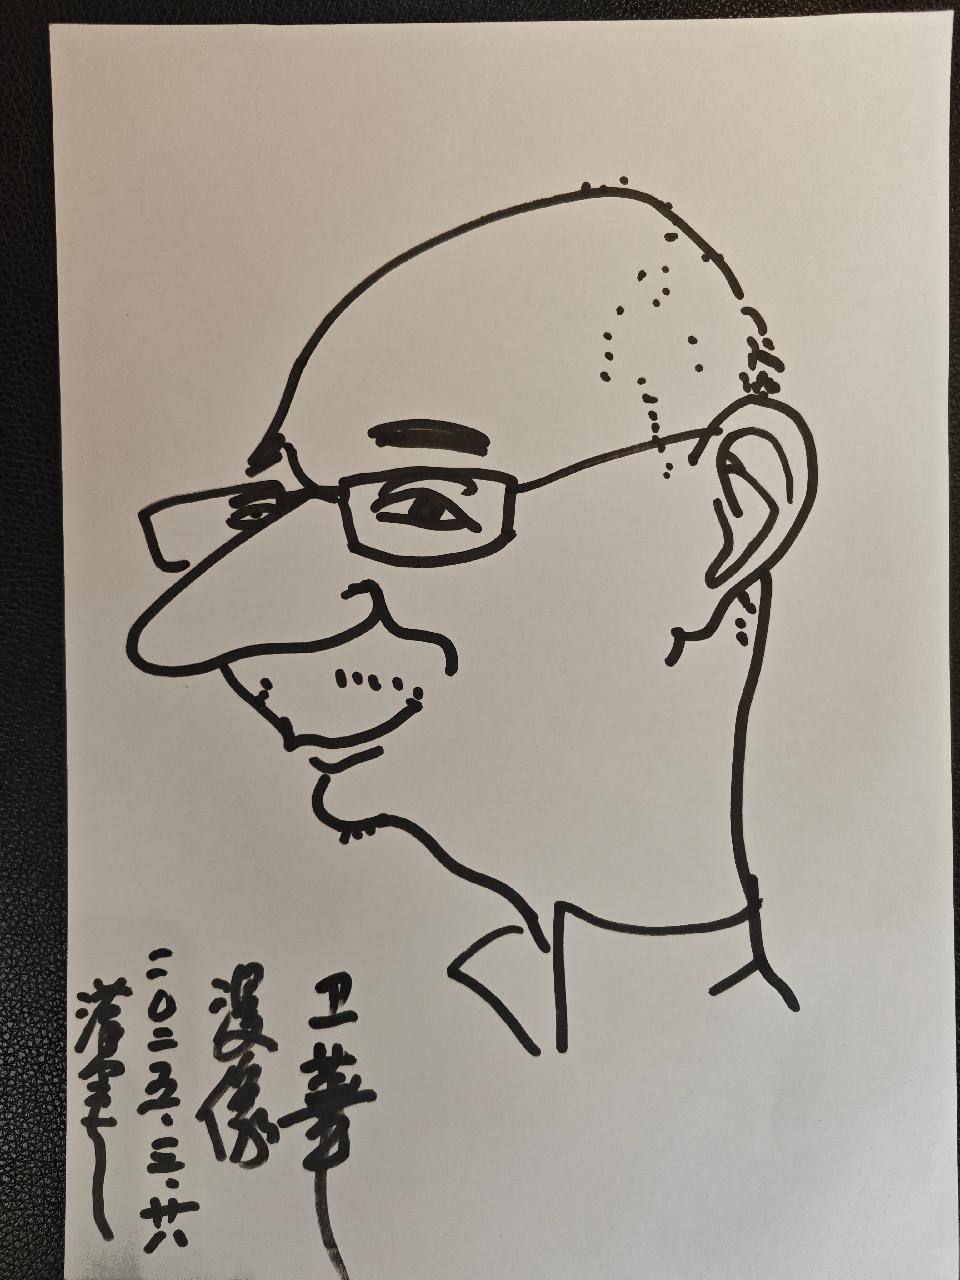 卫華
漫像
二〇二五·三·廿八